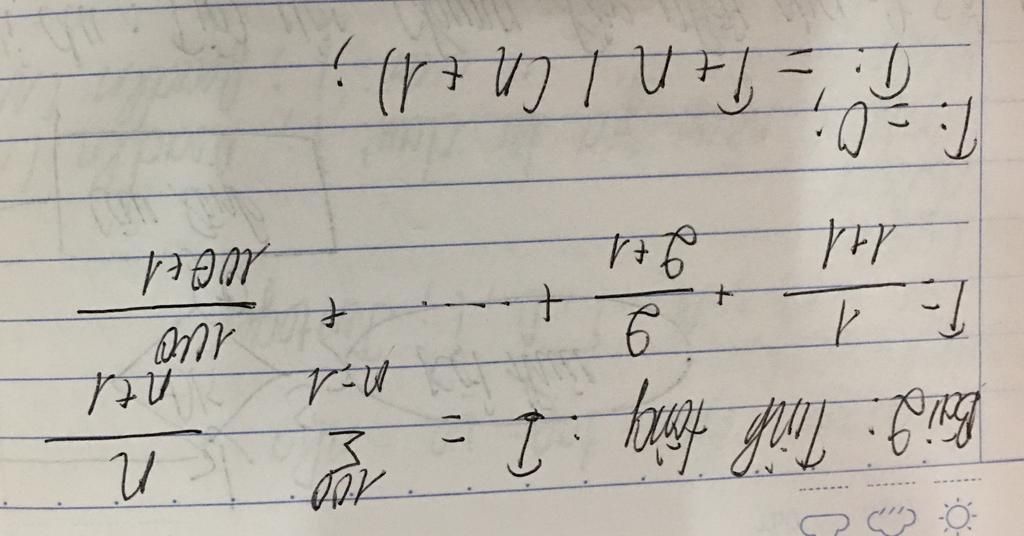 Bài 2: Tính tổng : T = 100 Σ n=1 n/(n+1)
T = 1/(1+1) + 2/(2+1) + ..... + 100/(100+1)
T:=0;
T:=T+n/(n+1);